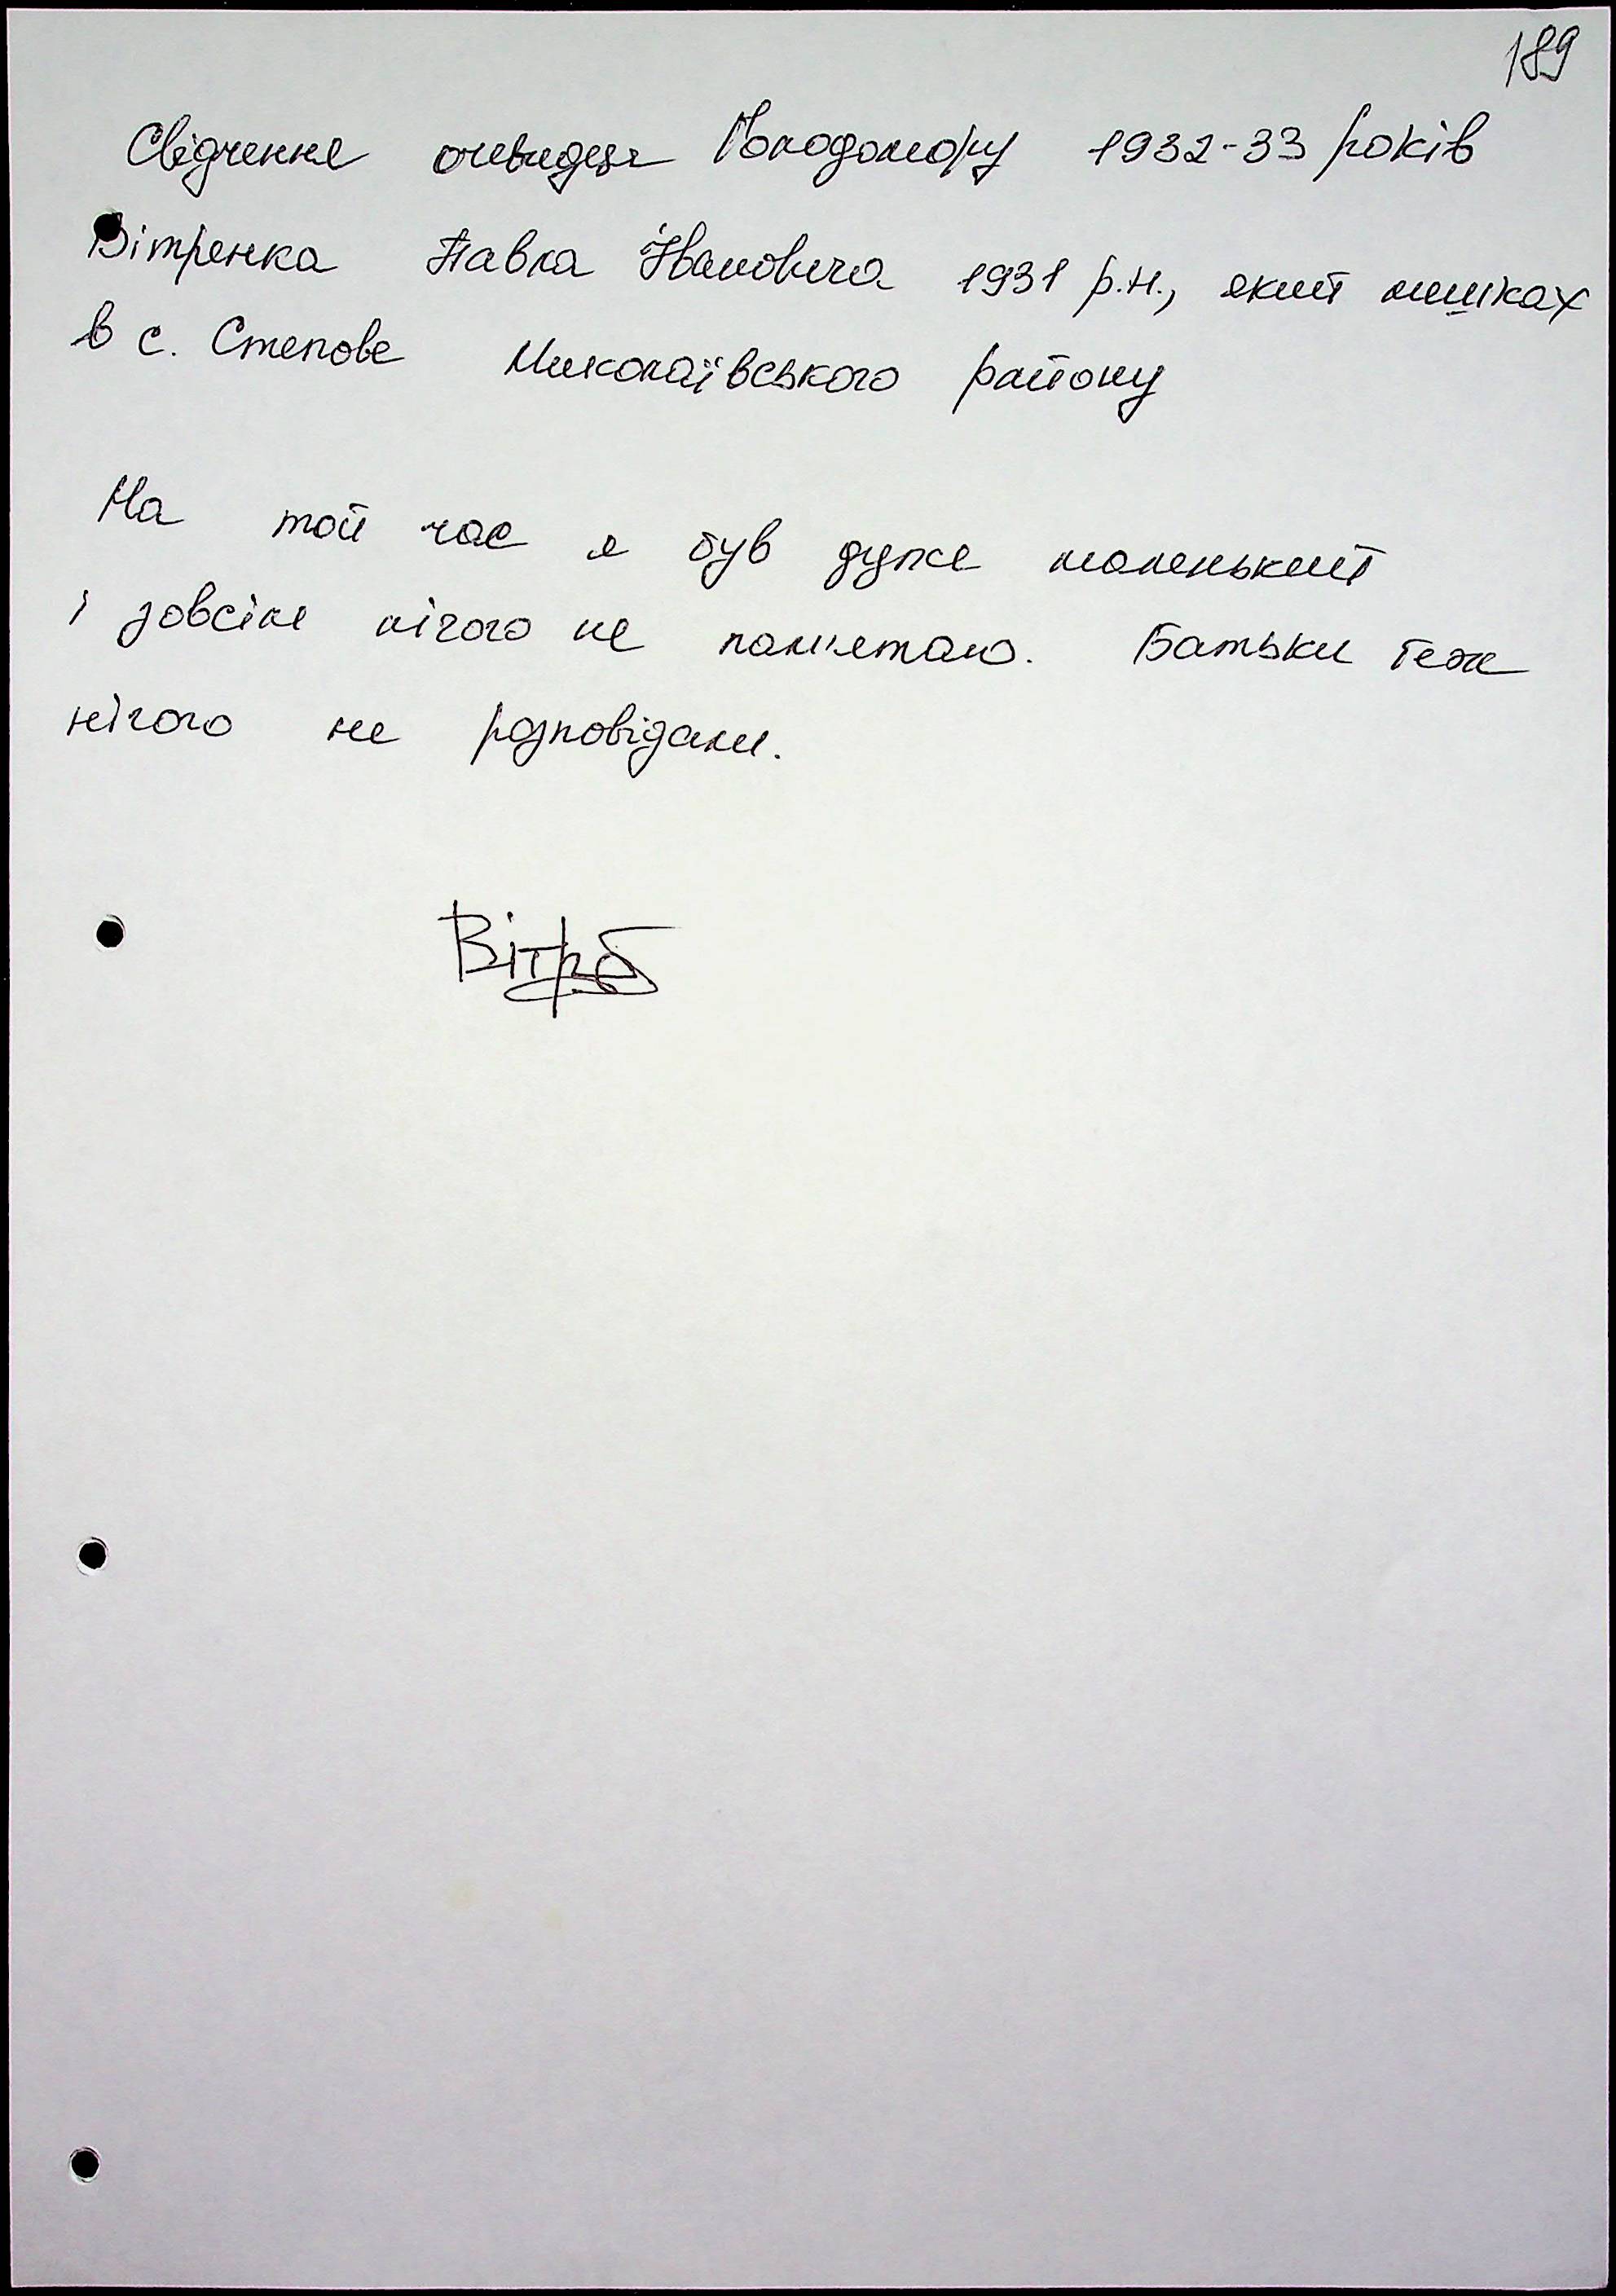 189
Свідчення очевидця Голодомору 1932-33 років
Вітренка Павла Івановича 1931 р.н., який мешкає
в с. Степове Миколаївського району
На той час я був дуже маленький
і зовсім нічого не пам'ятаю. Батьки теж
нічого не розповідали.